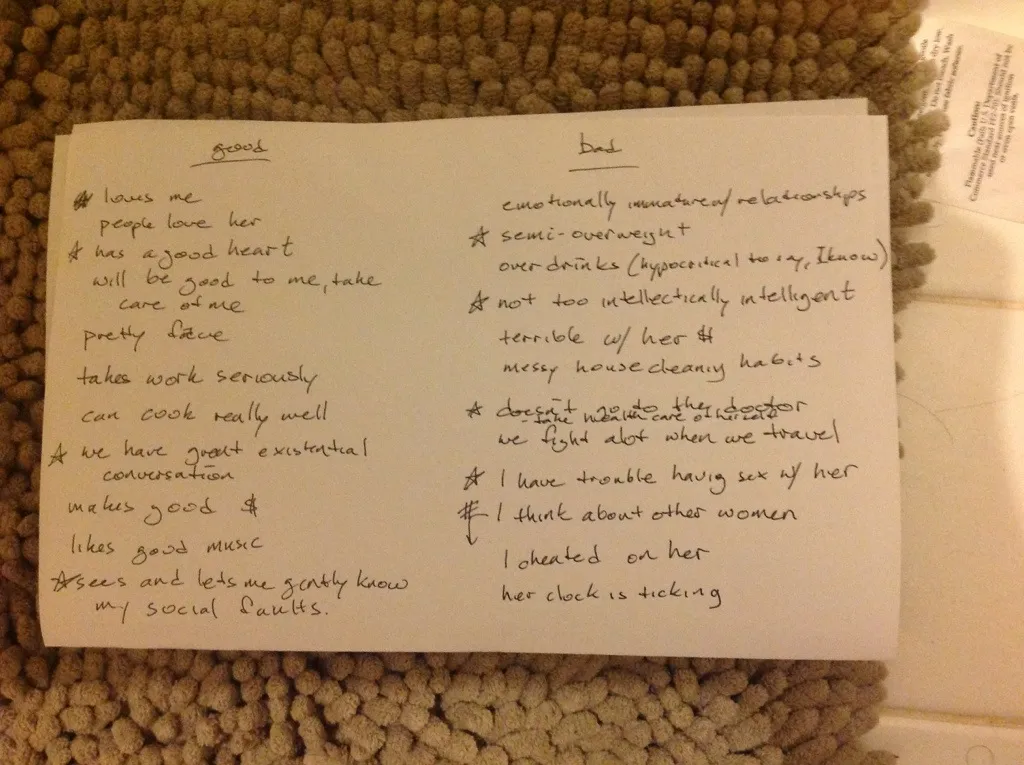 good
☆ loves me
people love her
☆ has a good heart
will be good to me, take
care of me
pretty face
takes work seriously
can cook really well
☆ we have great existential
conversation
makes good $
likes good music
☆ sees and lets me gently know
my social faults.
bad
emotionally immature w/ relationships
☆ semi-overweight
over drinks (hypocritical to say, I know)
☆ not too intellectically intelligent
terrible w/ her $
messy housecleaning habits
☆ doesn't go to the doctor
- take health care of herself
we fight alot when we travel
☆ I have trouble havig sex w/ her
I think about other women
I cheated on her
her clock is ticking
Caution:
Flammable (Fails U.S. Department of
Commerce Standard FF2-70): Should not be
used near sources of ignition
or even open vents.